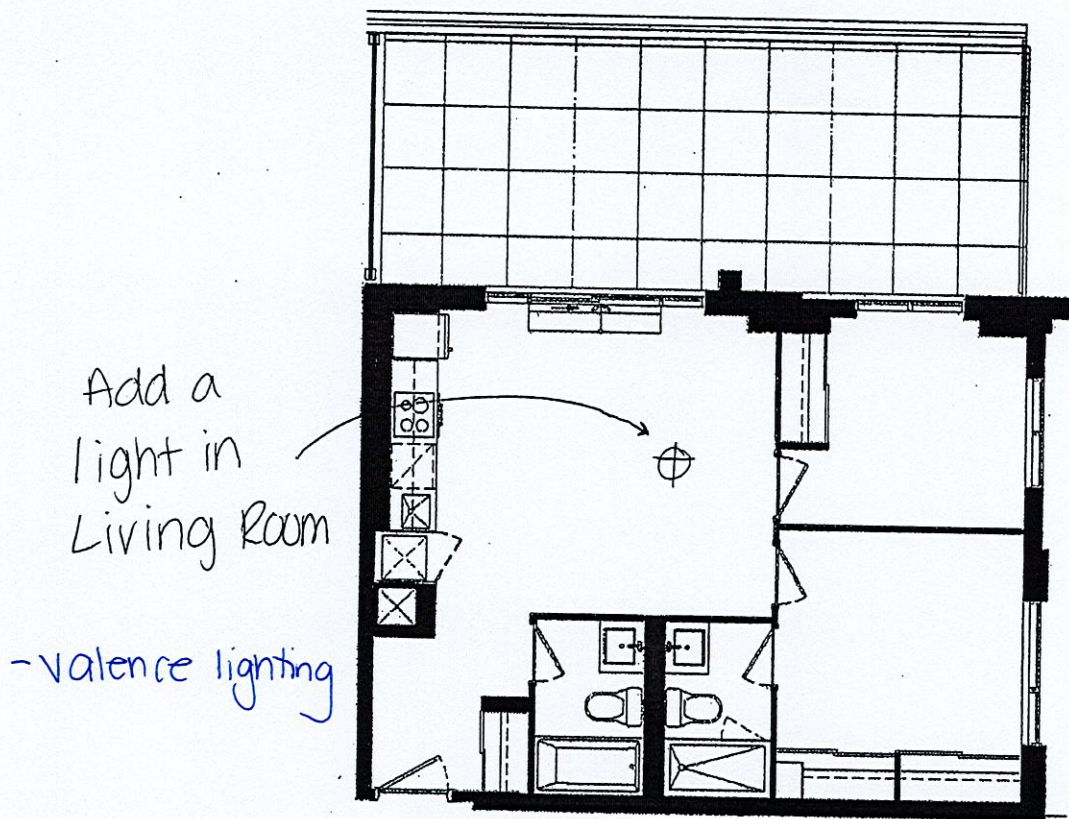 Add a
light in
Living Room
- valence lighting